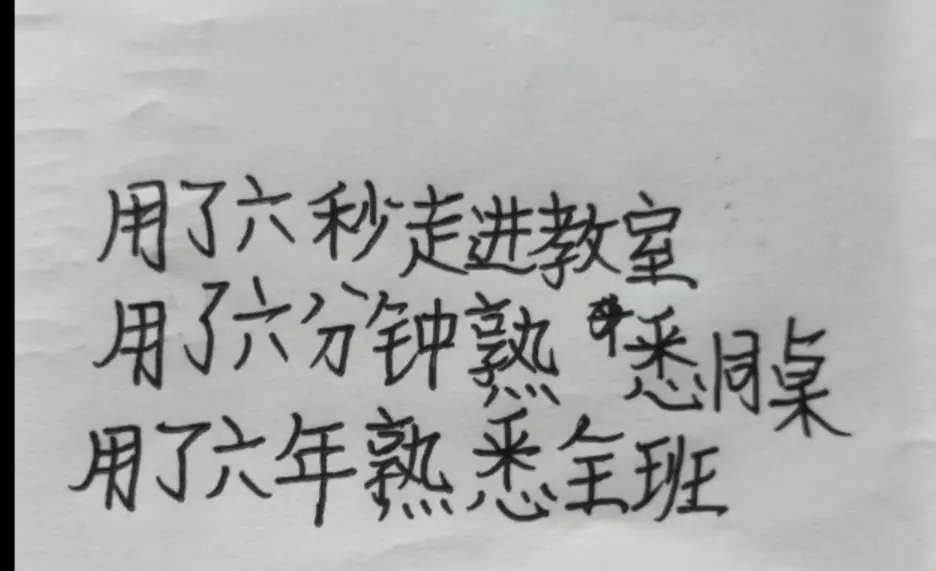 用了六秒走进教室
用了六分钟熟悉同桌
用了六年熟悉全班